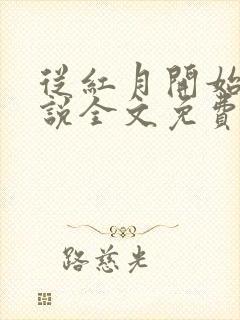 從紅月開始
說全文免費
路慈光